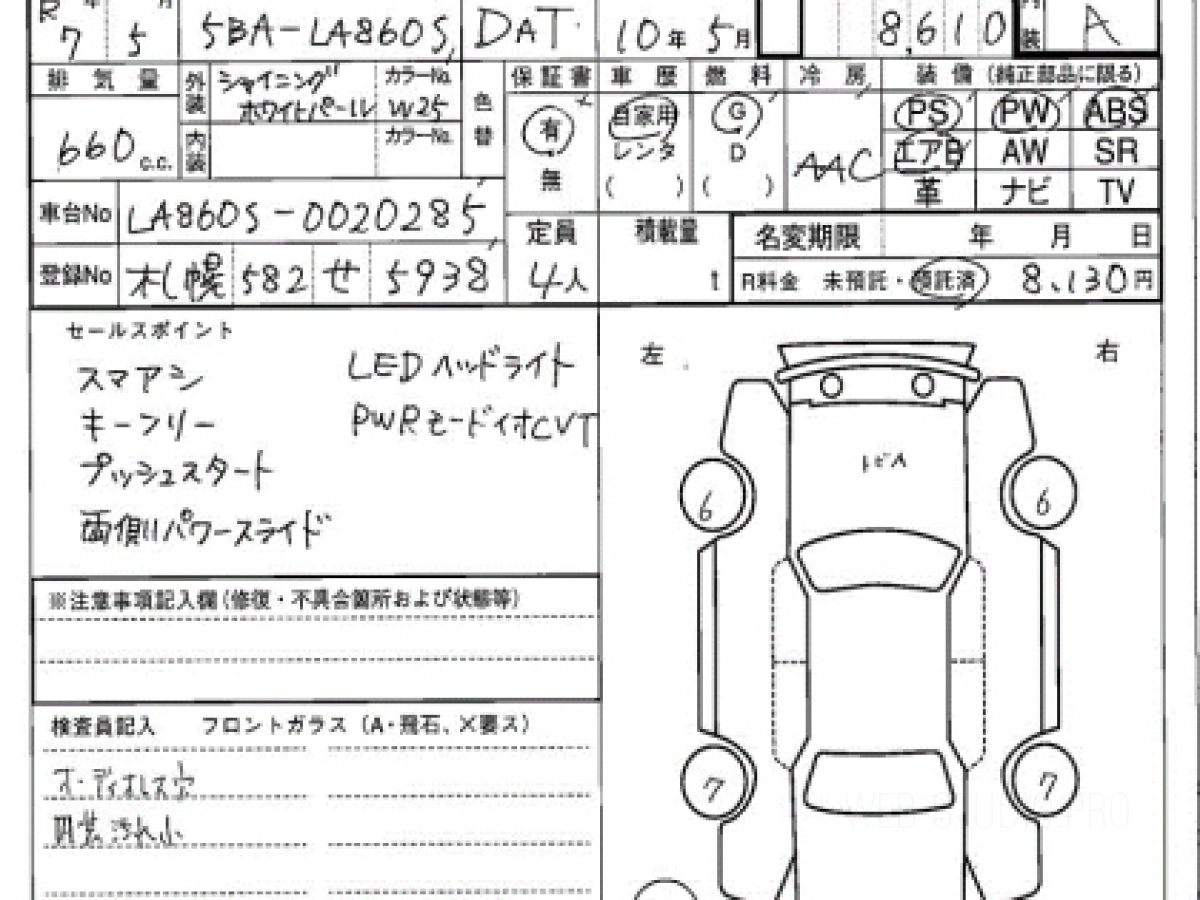 R 年 月
7 5 5BA-LA860S DAT 10年 5月 8,610 内装 A
排気量 外装 シャイニング ホワイトパール カラーNo. W25 色替 保証書 車歴 燃料 冷房 装備 (純正部品に限る)
660 c.c. 内装 カラーNo. 有 自家用 G AAC PS PW ABS
レンタ D エアB AW SR
無 ( ) ( ) 革 ナビ TV
車台No LA860S-0020285 定員 積載量 名変期限 年 月 日
登録No 札幌 582 せ 5938 4人 t R料金 未預託・預託済 8,130円
セールスポイント
スマアシ LEDヘッドライト
キーフリー PWRモード付CVT
プッシュスタート
両側パワースライド
左 右
トビA
6 6
※注意事項記入欄(修復・不具合箇所および状態等)
検査員記入 フロントガラス (A・飛石、X要ス)
オーディオレス穴
内装汚れ小
7 7